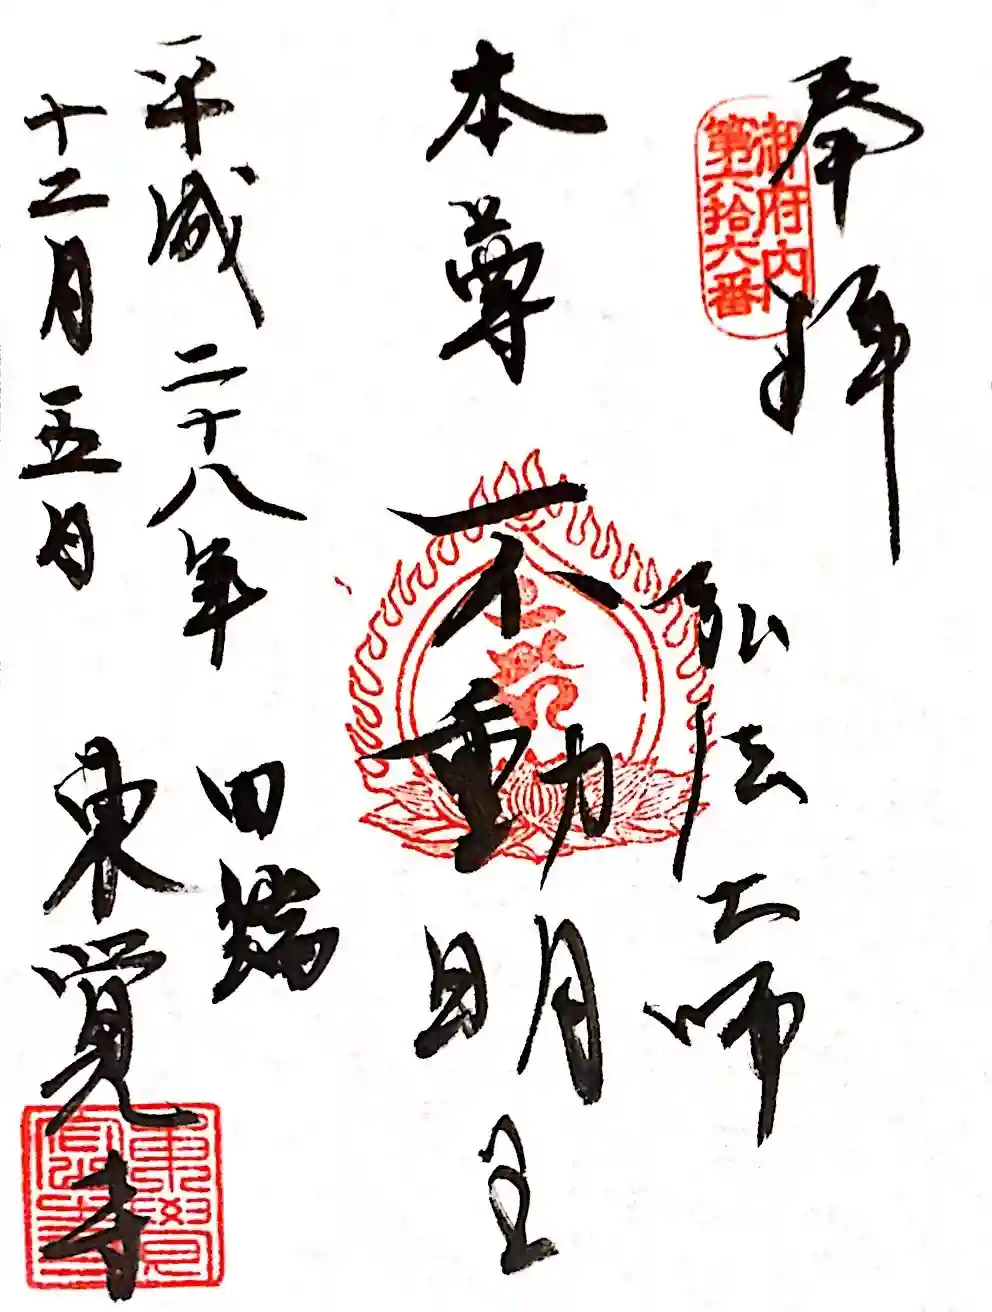 奉拝
御府内
第六拾六番
弘法大師
本尊 不動明王
平成二十八年
十二月五日
田端
東覚寺
東覺寺